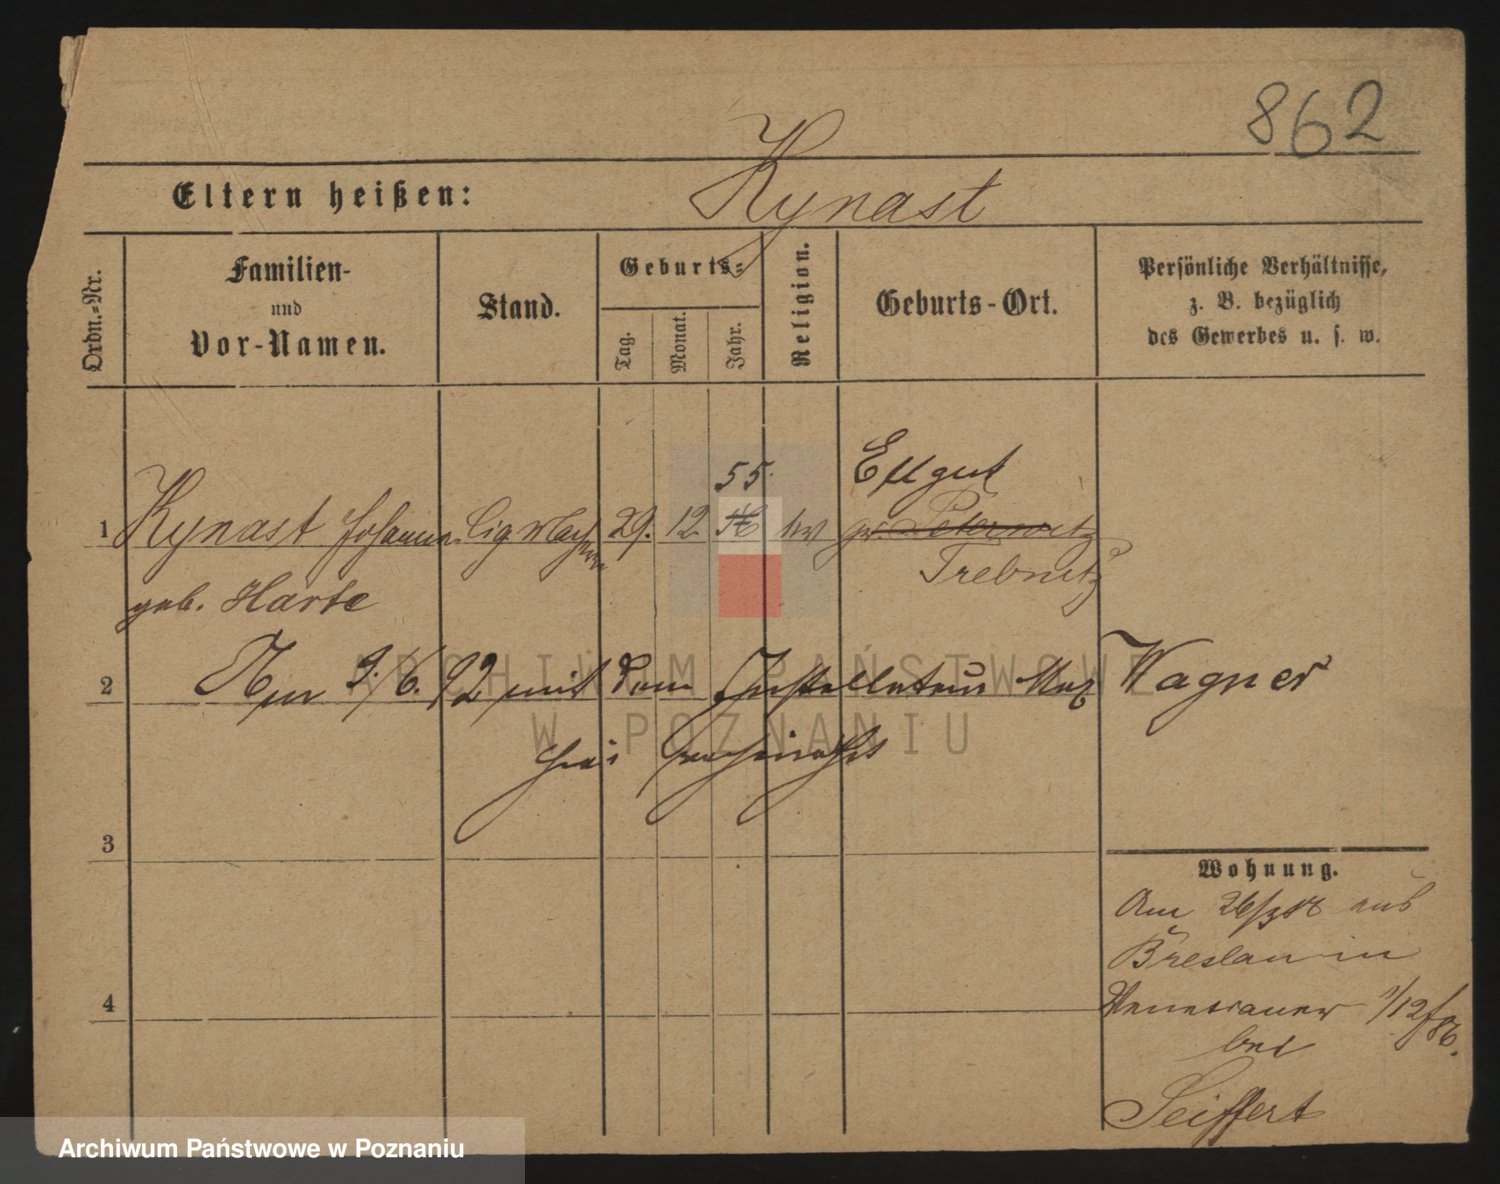 862
Kynast
Eltern heißen:
Ordn.-Nr.
Familien-
und
Vor-Namen.
Stand.
Geburts-
Tag.
Monat.
Jahr.
Religion.
Geburts-Ort.
Persönliche Verhältnisse,
z. B. bezüglich
des Gewerbes u. s. w.
55. Ellgut
1 Kynast Johanna 29. 12. Petersvitz
Trebnitz
geb. Harte
2 Am 9./6. 92 mit dem Installateur Max Wagner
verheirathet
3
Wohnung.
Am 26/3 aus
Breslau in
4
1/12/86.
bei
Seiffert
ARCHIWUM PAŃSTWOWE
W POZNANIU
Archiwum Państwowe w Poznaniu